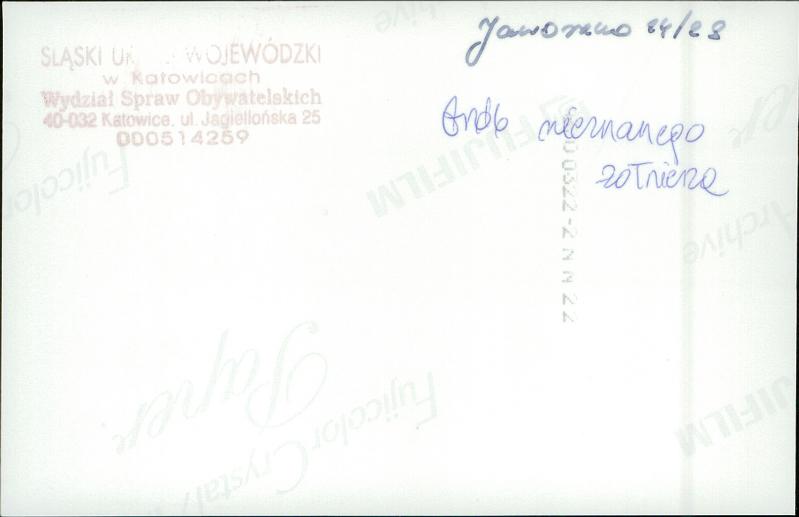 Jaworzno 24/23
ŚLĄSKI WOJEWÓDZKI
w Katowicach
Wydział Spraw Obywatelskich
40-032 Katowice, ul. Jagiellońska 25
000514259
Grób nieznanego
żołnierza
FUJIFILM
Fujicolor
Archive
Paper
Fujicolor Crystal
FUJIFILM